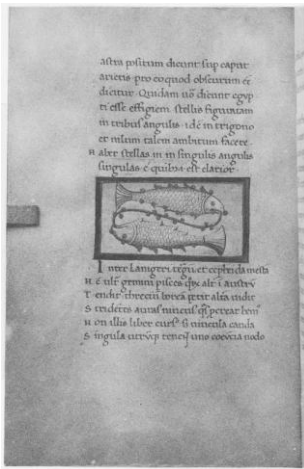 astra positum dicunt sup caput
arietis pro eo quod obscurum ē
dicitur. Quidam uō dicunt egyp
ti esse effigiem stellis figuratam
in tribus angulis. idē in trigono
et nilum talem ambitum facere.
habet stellas iii in singulis angulis
singulas. e quibus est clarior.
Inter lanigeri tergū et cepheida mesta
tendit threiciū boreā petit alta
stridentes auras niueus
Non illis liber cursꝰ s; uincula cauda
Singula utrosq; tenent uno coeuntia nodo